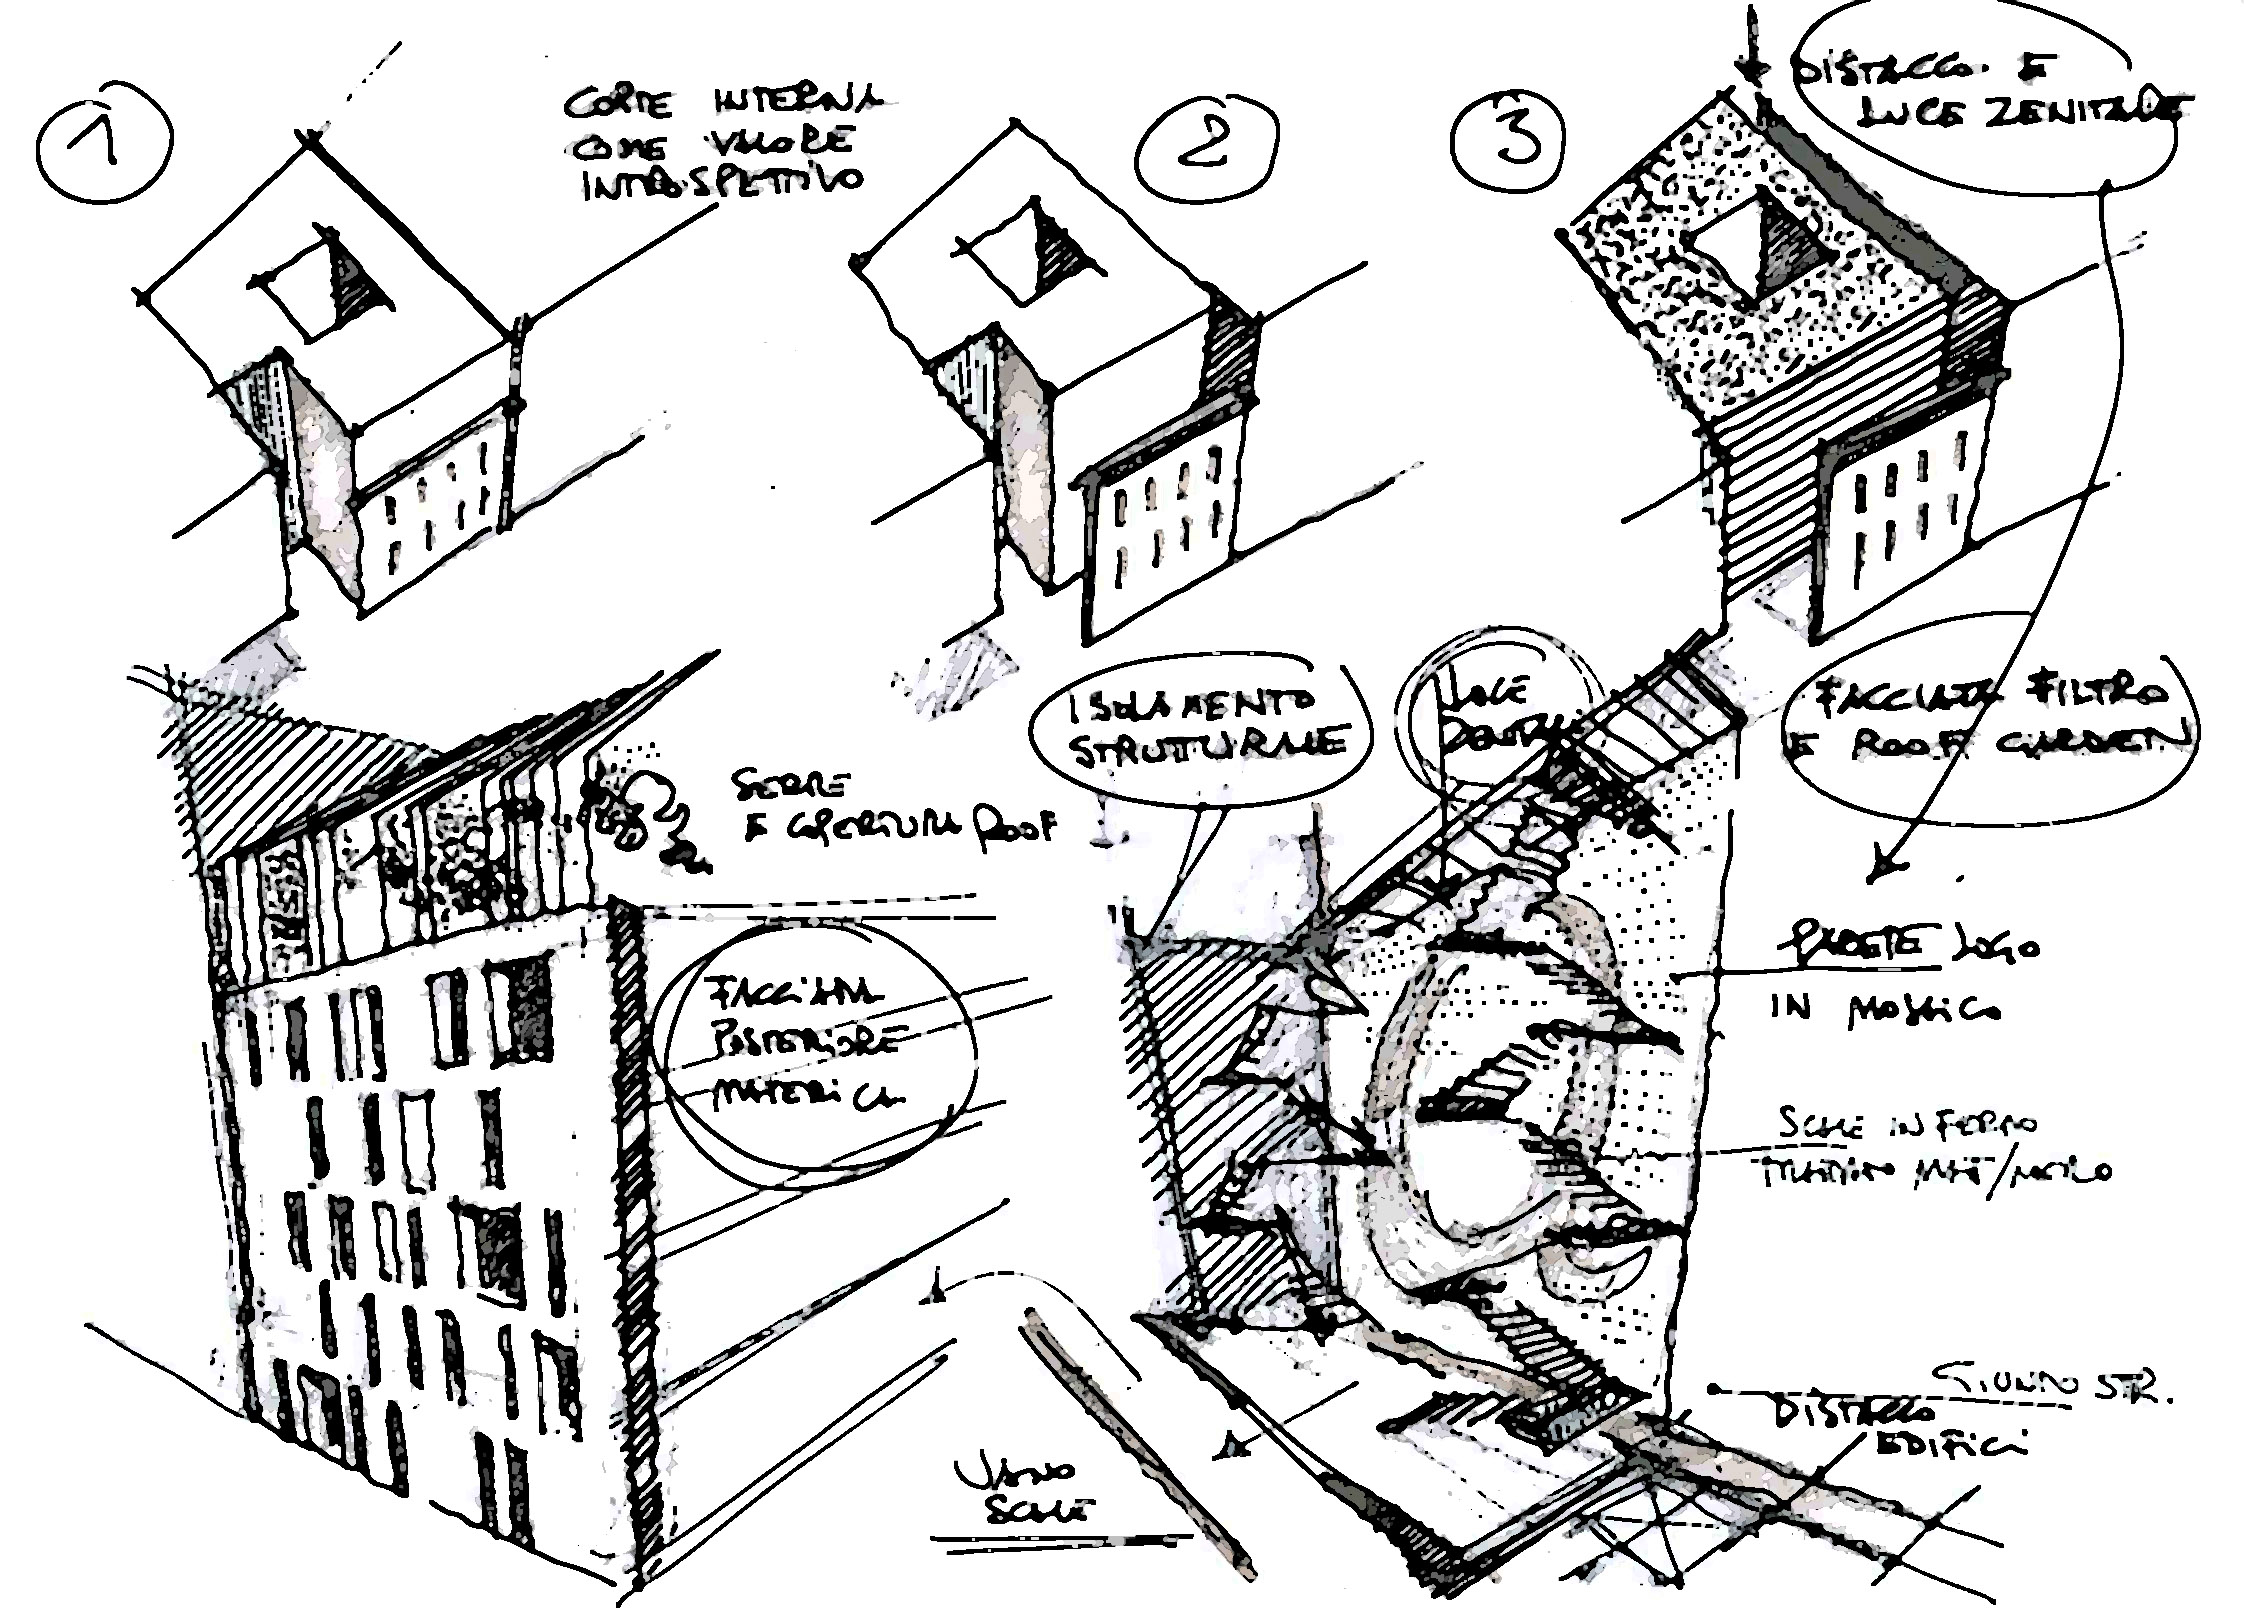 1
CORTE INTERNA
COME VALORE
INTROSPETTIVO
2
3
DISTACCO E
LUCE ZENITALE
ISOLAMENTO
STRUTTURALE
LUCE
FACCIATA FILTRO
E ROOF GARDEN
SERRE
E COPERTURA ROOF
FACCIATA
POSTERIORE
MATERICA
PARETE LOGO
IN MOSAICO
SCALE IN FERRO
VANO
SCALE
GIUNTO STR.
DISTACCO
EDIFICI